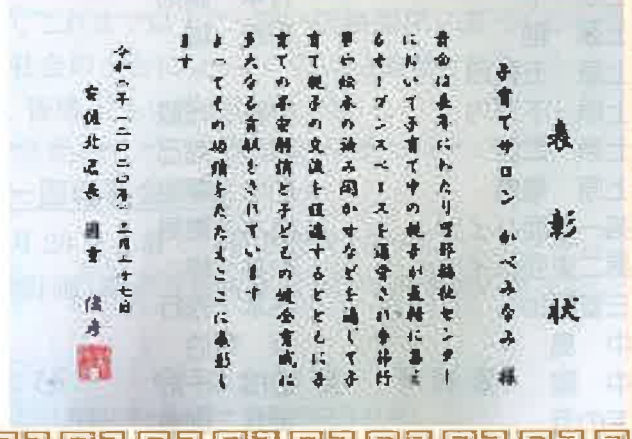 表彰状
子育てサロン かべみなみ 様
貴会は長年にわたり可部福祉センター
において子育て中の親子が気軽に集え
るオープンスペースを運営され季節行
事や絵本の読み聞かせなどを通して子
育て親子の交流を促進するとともに子
育ての不安解消と子どもの健全育成に
多大なる貢献をされています
よってその功績をたたえここに表彰し
ます
令和二年(二〇二〇年)二月二十七日
安佐北区長 國重 俊彦